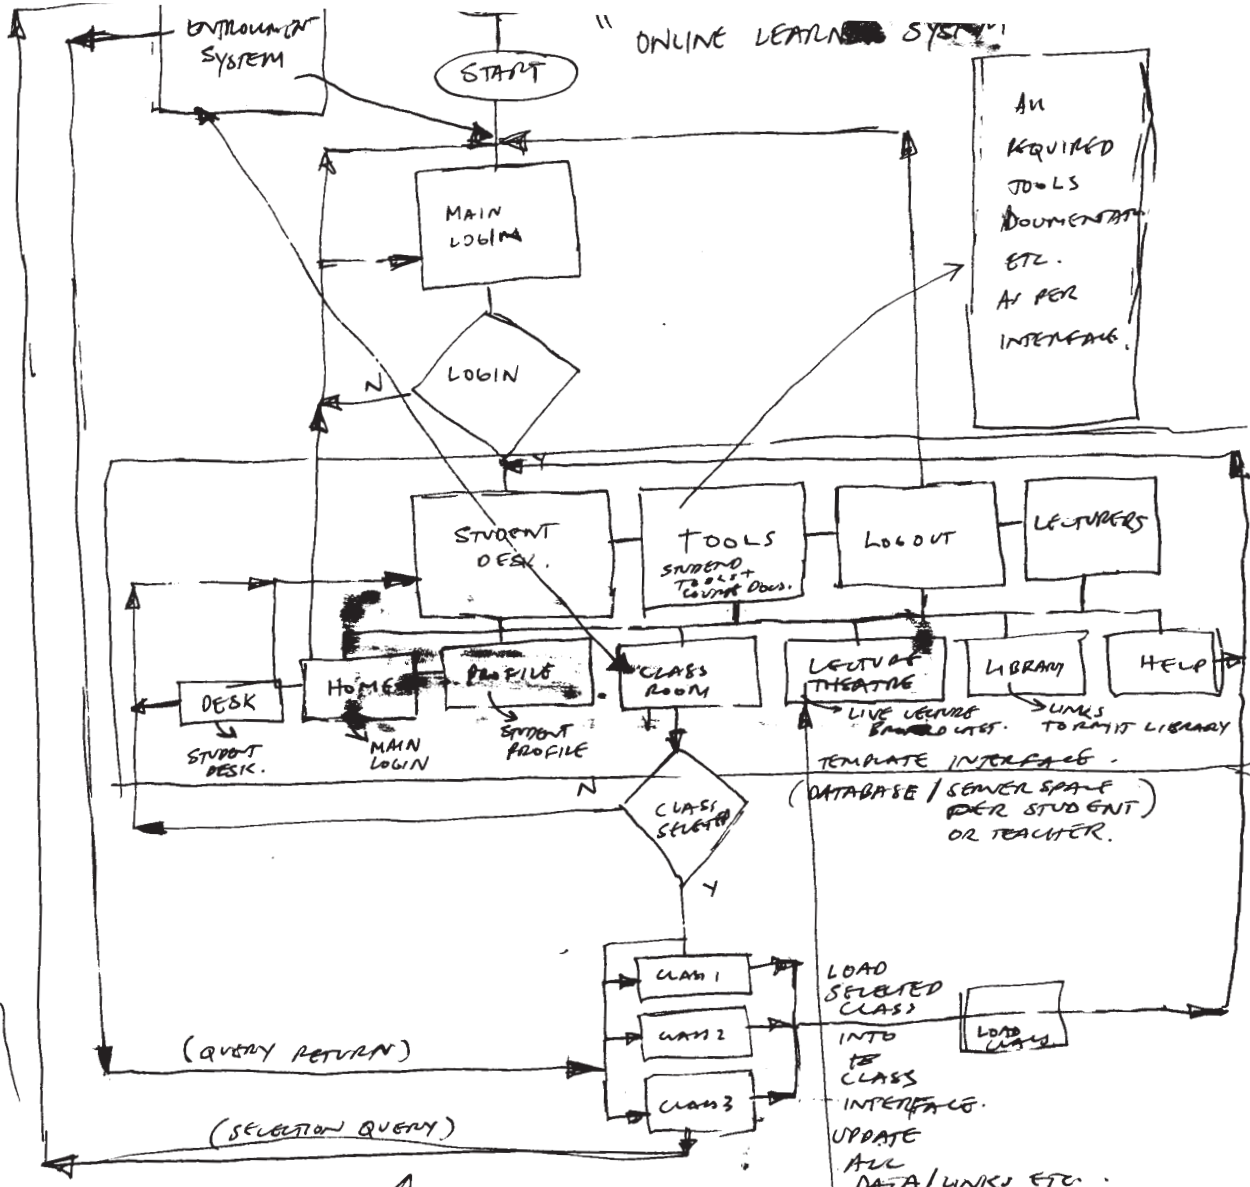 ENTROLLMENT
SYSTEM
START
" ONLINE LEARN SYSTEM
All
REQUIRED
TOOLS
DOCUMENTATI
ETC.
AS PER
INTERFACE.
MAIN
LOGIN
LOGIN
N
Y
STUDENT
DESK.
TOOLS
STUDEND
TOOLS +
COURSE DOCS.
LOGOUT
LECTURERS
DESK
HOME
PROFILE
CLASS
ROOM
LECTURE
THEATRE
LIBRARY
HELP
STUDENT
DESK.
MAIN
LOGIN
STUDENT
PROFILE
LIVE LECTURE
BROADCAST.
LINKS
TO RMIT LIBRARY
TEMPLATE INTERFACE.
(DATABASE / SERVER SPACE
PER STUDENT)
OR TEACHER.
N
CLASS
SELETED
Y
CLASS 1
CLASS 2
CLASS 3
LOAD
SELECTED
CLASS
INTO
CLASS
INTERFACE.
UPDATE
ALL
DATA/LINKS ETC.
LOAD
CLASS
(QUERY RETURN)
(SELECTION QUERY)